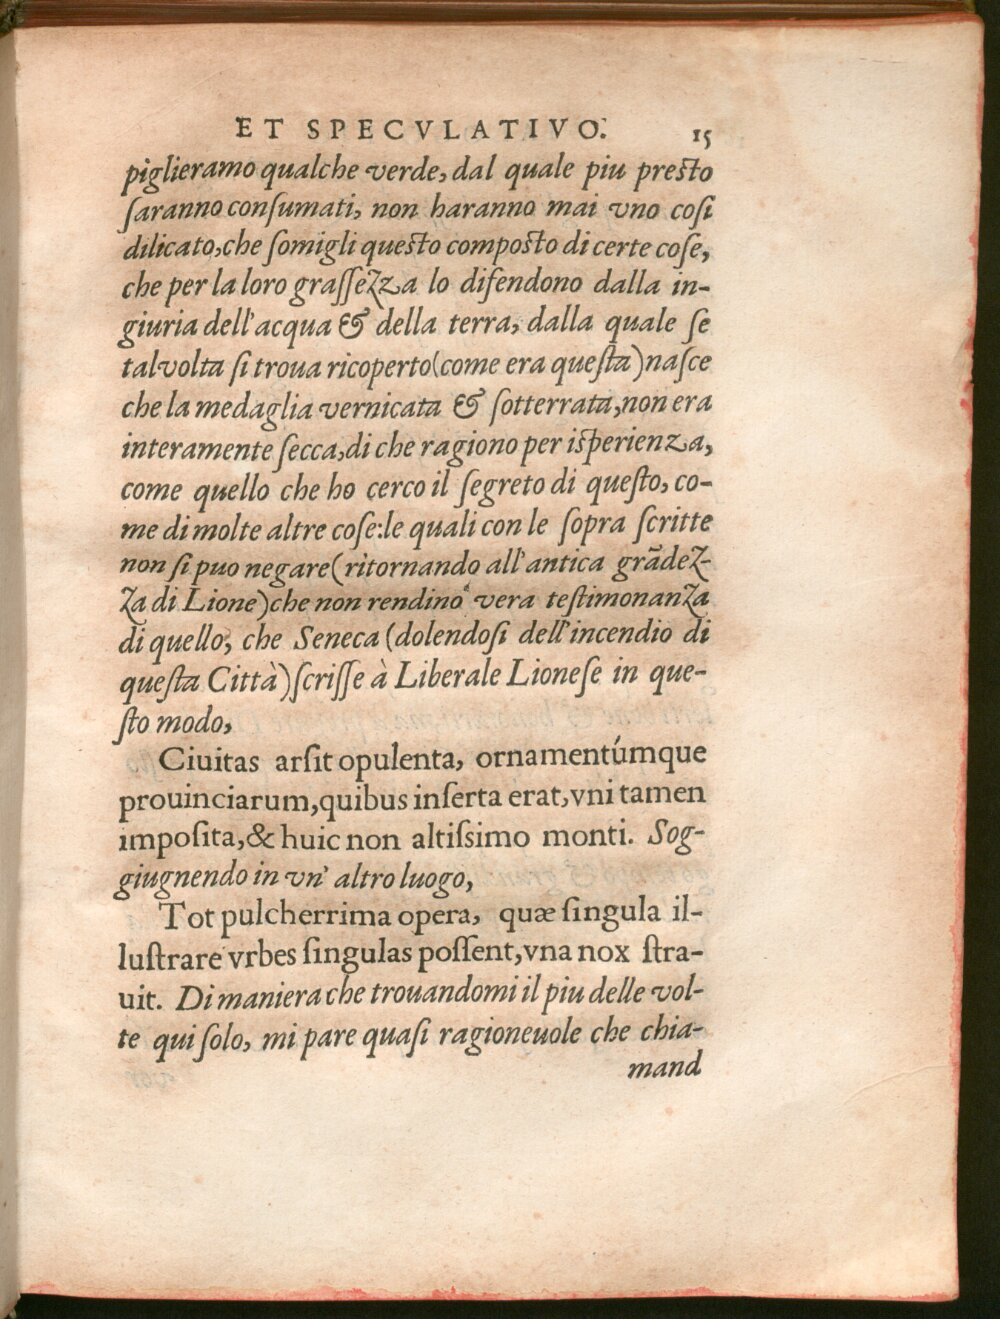 ET SPECVLATIVO. 15
piglieramo qualche verde, dal quale piu presto
saranno consumati, non haranno mai vno cosi
dilicato, che somigli questo composto di certe cose,
che per la loro grassezza lo difendono dalla in-
giuria dell'acqua & della terra, dalla quale se
talvolta si troua ricoperto (come era questa) nasce
che la medaglia vernicata & sotterrata, non era
interamente secca, di che ragiono per isperienza,
come quello che ho cerco il segreto di questo, co-
me di molte altre cose: le quali con le sopra scritte
non si puo negare (ritornando all'antica grãdez-
za di Lione) che non rendino vera testimonanza
di quello, che Seneca (dolendosi dell'incendio di
questa Città) scrisse à Liberale Lionese in que-
sto modo,
Ciuitas arsit opulenta, ornamentúmque
prouinciarum, quibus inserta erat, vni tamen
imposita, & huic non altissimo monti. Sog-
giugnendo in vn' altro luogo,
Tot pulcherrima opera, quæ singula il-
lustrare vrbes singulas possent, vna nox stra-
uit. Di maniera che trouandomi il piu delle vol-
te qui solo, mi pare quasi ragioneuole che chia-
mand